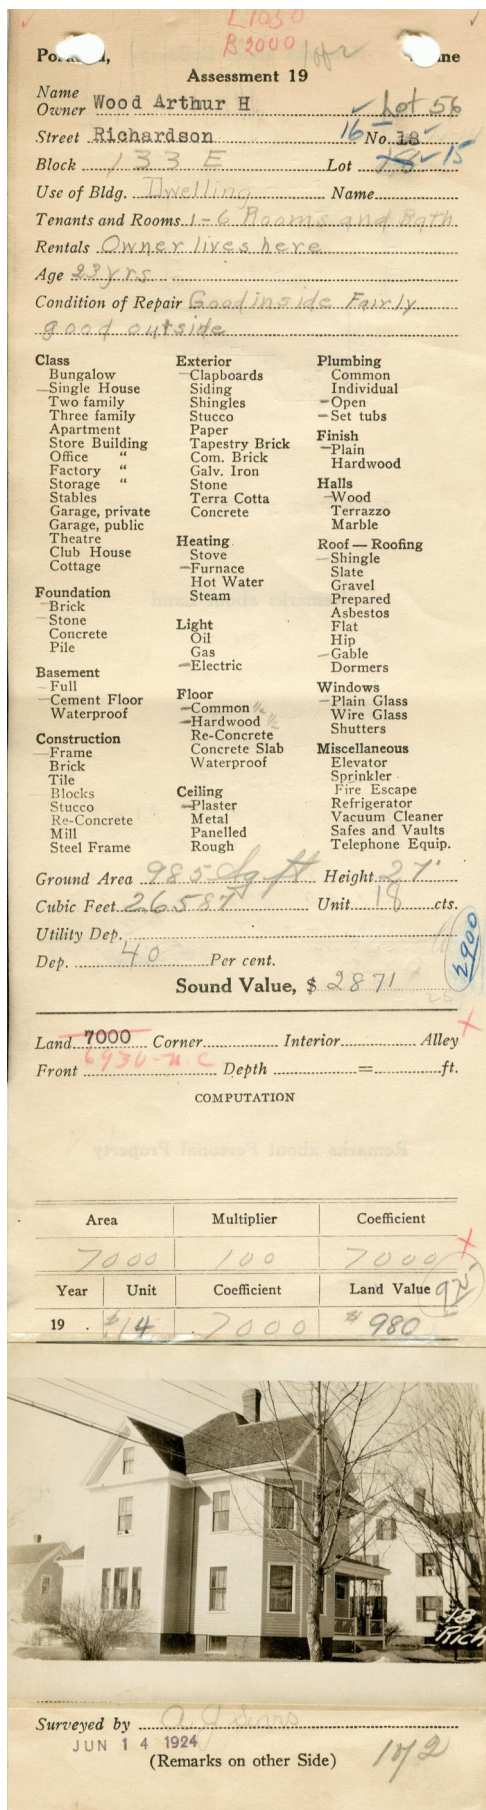 L1050
B2000 1 of 2
Assessment 19
Name
Owner Wood Arthur H Lot 56
Street Richardson 16 No. 18
Block 133 E Lot 15
Use of Bldg. Dwelling Name
Tenants and Rooms 1-6 Rooms and Bath
Rentals Owner lives here
Age 23 yrs
Condition of Repair Good inside Fairly
good outside
Class
Bungalow
Single House
Two family
Three family
Apartment
Store Building
Office "
Factory "
Storage "
Stables
Garage, private
Garage, public
Theatre
Club House
Cottage
Foundation
Brick
Stone
Concrete
Pile
Basement
Full
Cement Floor
Waterproof
Construction
Frame
Brick
Tile
Blocks
Stucco
Re-Concrete
Mill
Steel Frame
Exterior
Clapboards
Siding
Shingles
Stucco
Paper
Tapestry Brick
Com. Brick
Galv. Iron
Stone
Terra Cotta
Concrete
Heating
Stove
Furnace
Hot Water
Steam
Light
Oil
Gas
Electric
Floor
Common 1/2
Hardwood 1/2
Re-Concrete
Concrete Slab
Waterproof
Ceiling
Plaster
Metal
Panelled
Rough
Plumbing
Common
Individual
Open
Set tubs
Finish
Plain
Hardwood
Halls
Wood
Terrazzo
Marble
Roof — Roofing
Shingle
Slate
Gravel
Prepared
Asbestos
Flat
Hip
Gable
Dormers
Windows
Plain Glass
Wire Glass
Shutters
Miscellaneous
Elevator
Sprinkler
Fire Escape
Refrigerator
Vacuum Cleaner
Safes and Vaults
Telephone Equip.
Ground Area 985 Sq ft Height 27'
Cubic Feet 26587 Unit 18 cts.
Utility Dep.
Dep. 40 Per cent. 2900
Sound Value, $ 2871
Land 7000 Corner Interior Alley
6930 - N.C
Front Depth = ft.
COMPUTATION
Area Multiplier Coefficient
7000 100 7000
Year Unit Coefficient Land Value 925
19 . $14 7000 $980
18
Rich
Surveyed by A J Sears
JUN 14 1924
(Remarks on other Side) 1 of 2